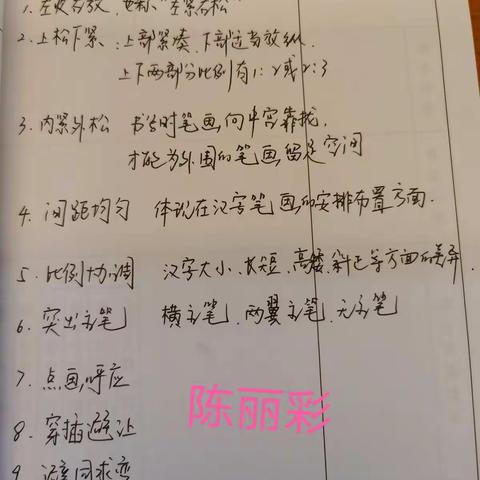 1. 左收右放，也称"左紧右松"
2. 上松下紧：上部紧凑，下部适当放纵.
上下两部分比例有1:2或2:3
3. 内紧外松 书写时笔画向中宫靠拢，
才能为外围的笔画留足空间
4. 间距均匀 体现在汉字笔画的安排布置方面.
5. 比例协调 汉字大小、长短、高矮、斜正等方面的差异.
6. 突出主笔 横主笔、两翼主笔、无主笔
7. 点画呼应
陈丽彩
8. 穿插避让
9. 避同求变